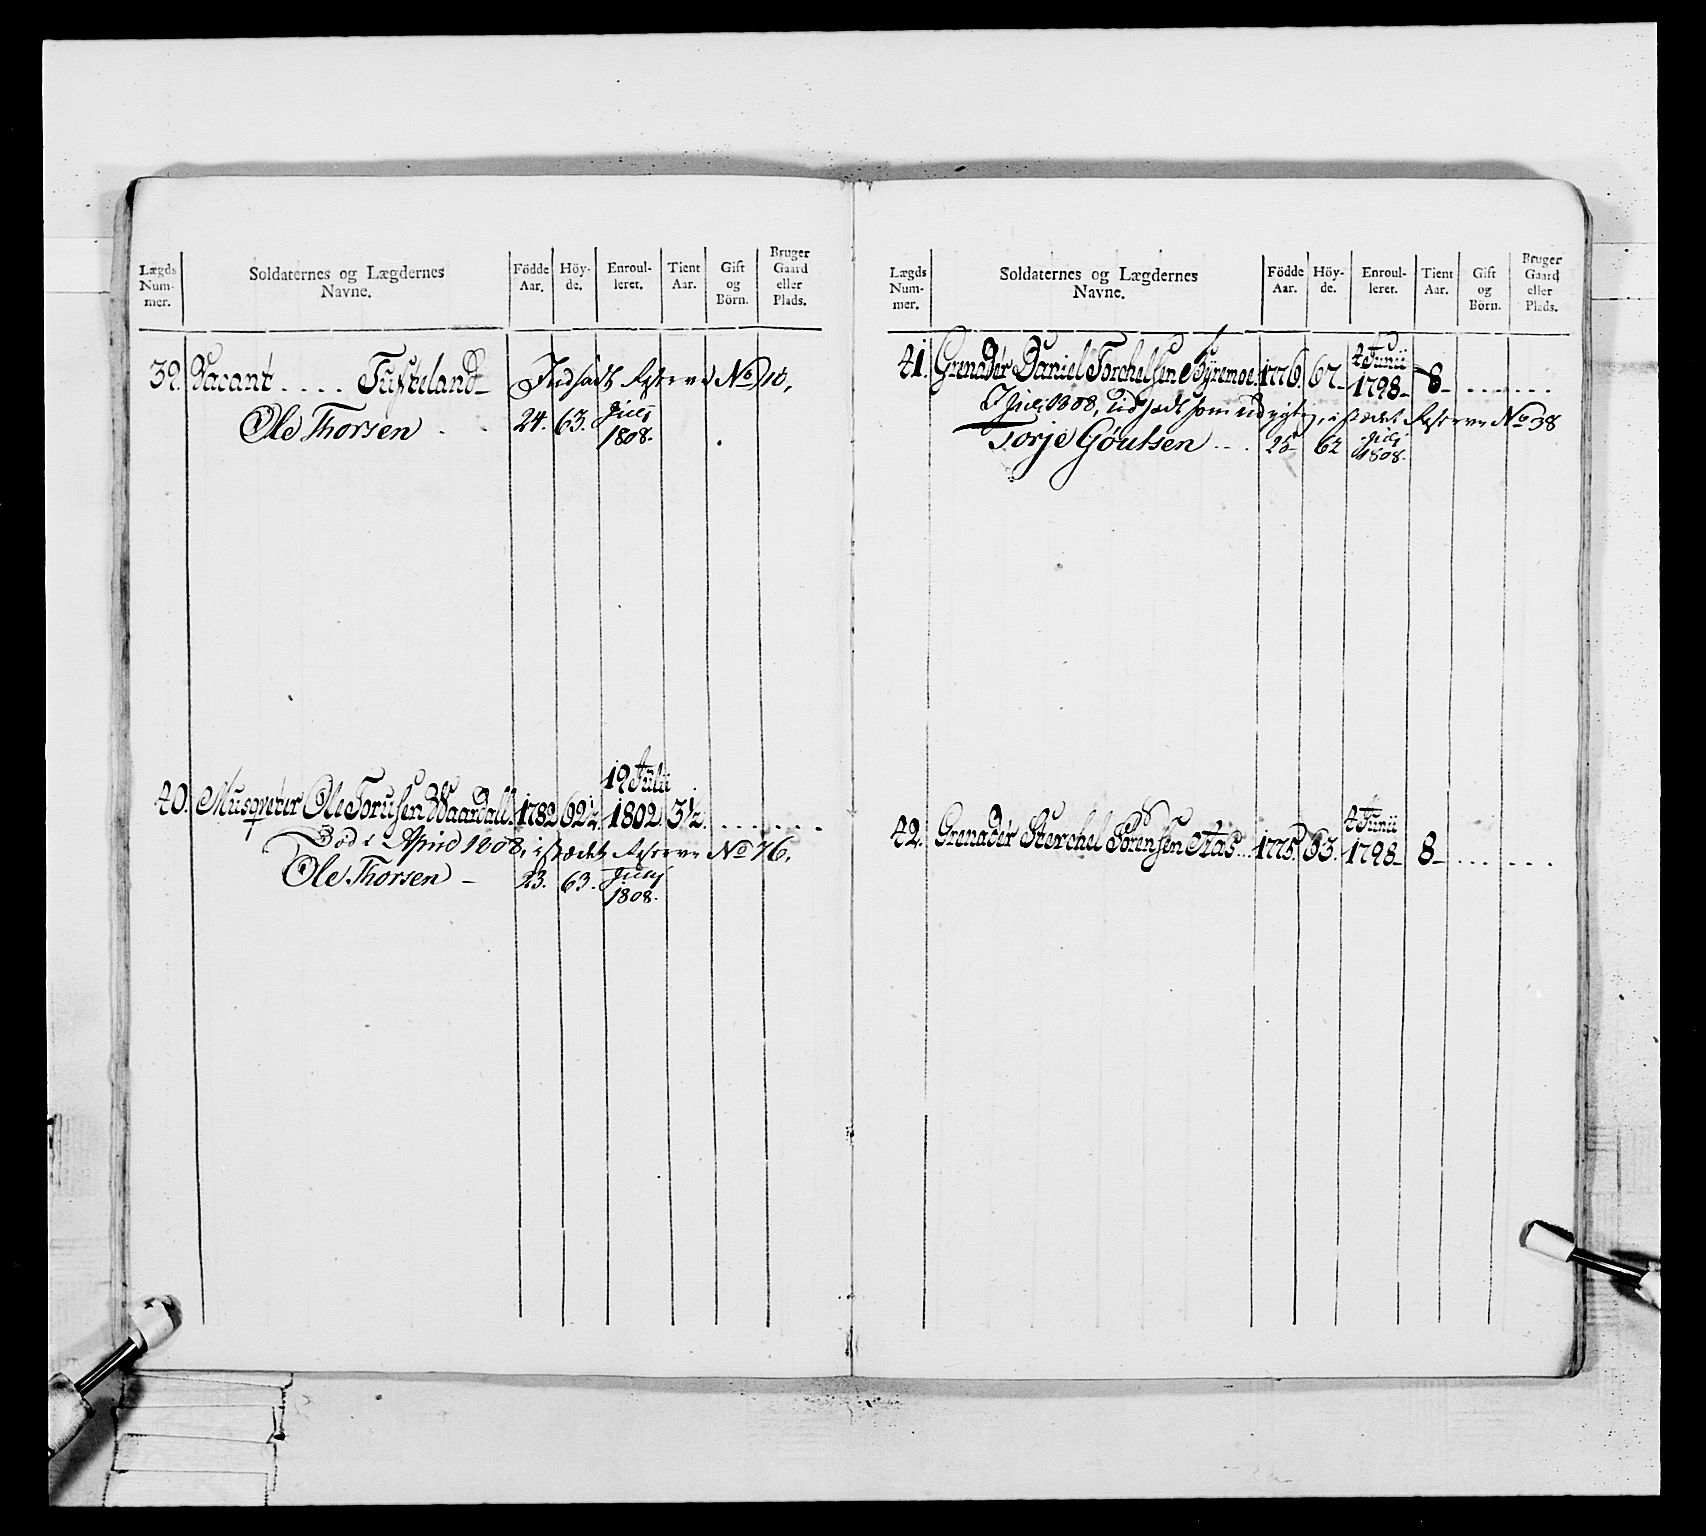 Lægds Num- mer. Soldaternes og Lægdernes Navne. Födde Aar. Höy- de. Enroul- leret. Tient Aar. Gift og Börn. Bruger Gaard eller Plads.
39. Vacant . . . . Tufteland Indsadt Reserve No 10,
Ole Thorsen . . 24. 63. July 1808.
40. Musqveter Ole Torusen Waardall. 1782 62½. 19 Julii 1802. 3½. . . . . . .
Död i April 1808, istædet Reserve No 76,
Ole Thorsen – 23. 63. July 1808.
Lægds Num- mer. Soldaternes og Lægdernes Navne. Födde Aar. Höy- de. Enroul- leret. Tient Aar. Gift og Börn. Bruger Gaard eller Plads.
41. Grenadér Daniel Torchelsen Byremoe. 1776. 67. 4 Junii 1798. 8. . . . . . .
July 1808, udsadt som udygtig, istædet Reserve No 38
Torje Goutsen . . . 25 62 July 1808.
42. Grenadér Sterchel Sörensen Aas . . . 1775. 63. 4 Junii 1798. 8. . . . . . .